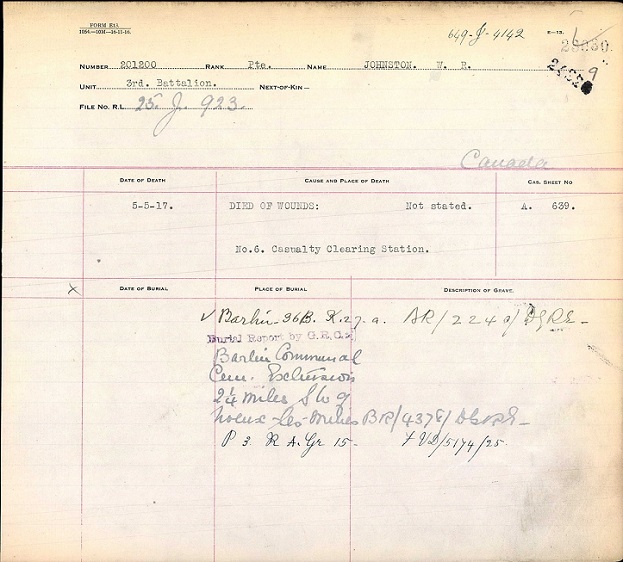 FORM E&A
649-J-4142
E-13.
NUMBER 201200 RANK Pte. NAME JOHNSTON. W. R.
9
UNIT 3rd. Battalion. NEXT-OF-KIN—
FILE NO. R.L. 25. J. 923.
Canada
DATE OF DEATH CAUSE AND PLACE OF DEATH CAS. SHEET NO
5-5-17. DIED OF WOUNDS: Not stated. A. 639.
No.6. Casualty Clearing Station.
x DATE OF BURIAL PLACE OF BURIAL DESCRIPTION OF GRAVE.
✓ Barlin - 36B. K.27.a. AR/224
Burial Report by G.R.C.
Barlin Communal
Cem. Extension
2¼ miles S W of
Noeux-les-Mines BR/4378/
P 3 R A. Gr 15- + VD/5174/25